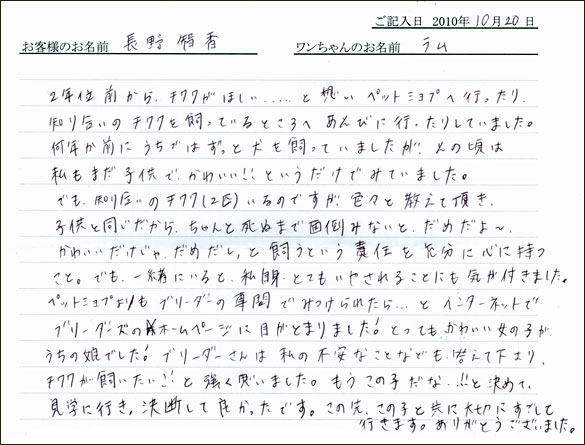 ご記入日 2010年10月20日
お客様のお名前 長野智香 ワンちゃんのお名前 ラム
2年位前から、チワワがほしい.....と想いペットショプへ行ったり、
知り合いのチワワを飼っているところへあそびに行ったりしていました。
何年か前にうちではずっと犬を飼っていましたが、その頃は
私もまだ子供で、かわいい!!というだけでみていました。
でも、知り合いのチワワ(2匹)いるのですが、色々と教えて頂き、
子供と同じだから、ちゃんと死ぬまで面倒みないと、だめだよ〜、
かわいいだけじゃ、だめだし、と飼うという責任を充分に心に持つ
こと。でも、一緒にいると、私自身、とてもいやされることにも気が付きました。
ペットショプよりもブリーダーの専門でみつけられたら...とインターネットで
ブリーダーズのホームページに目がとまりました!とってもかわいい女の子が
うちの娘でした!ブリーダーさんは私の不安なことなども答えて下さり、
チワワが飼いたい!!と強く思いました。もうこの子だな..!!と決めて、
見学に行き、決断して良かったです。この先、この子と共に大切にすごして
行きます。ありがとうございました。